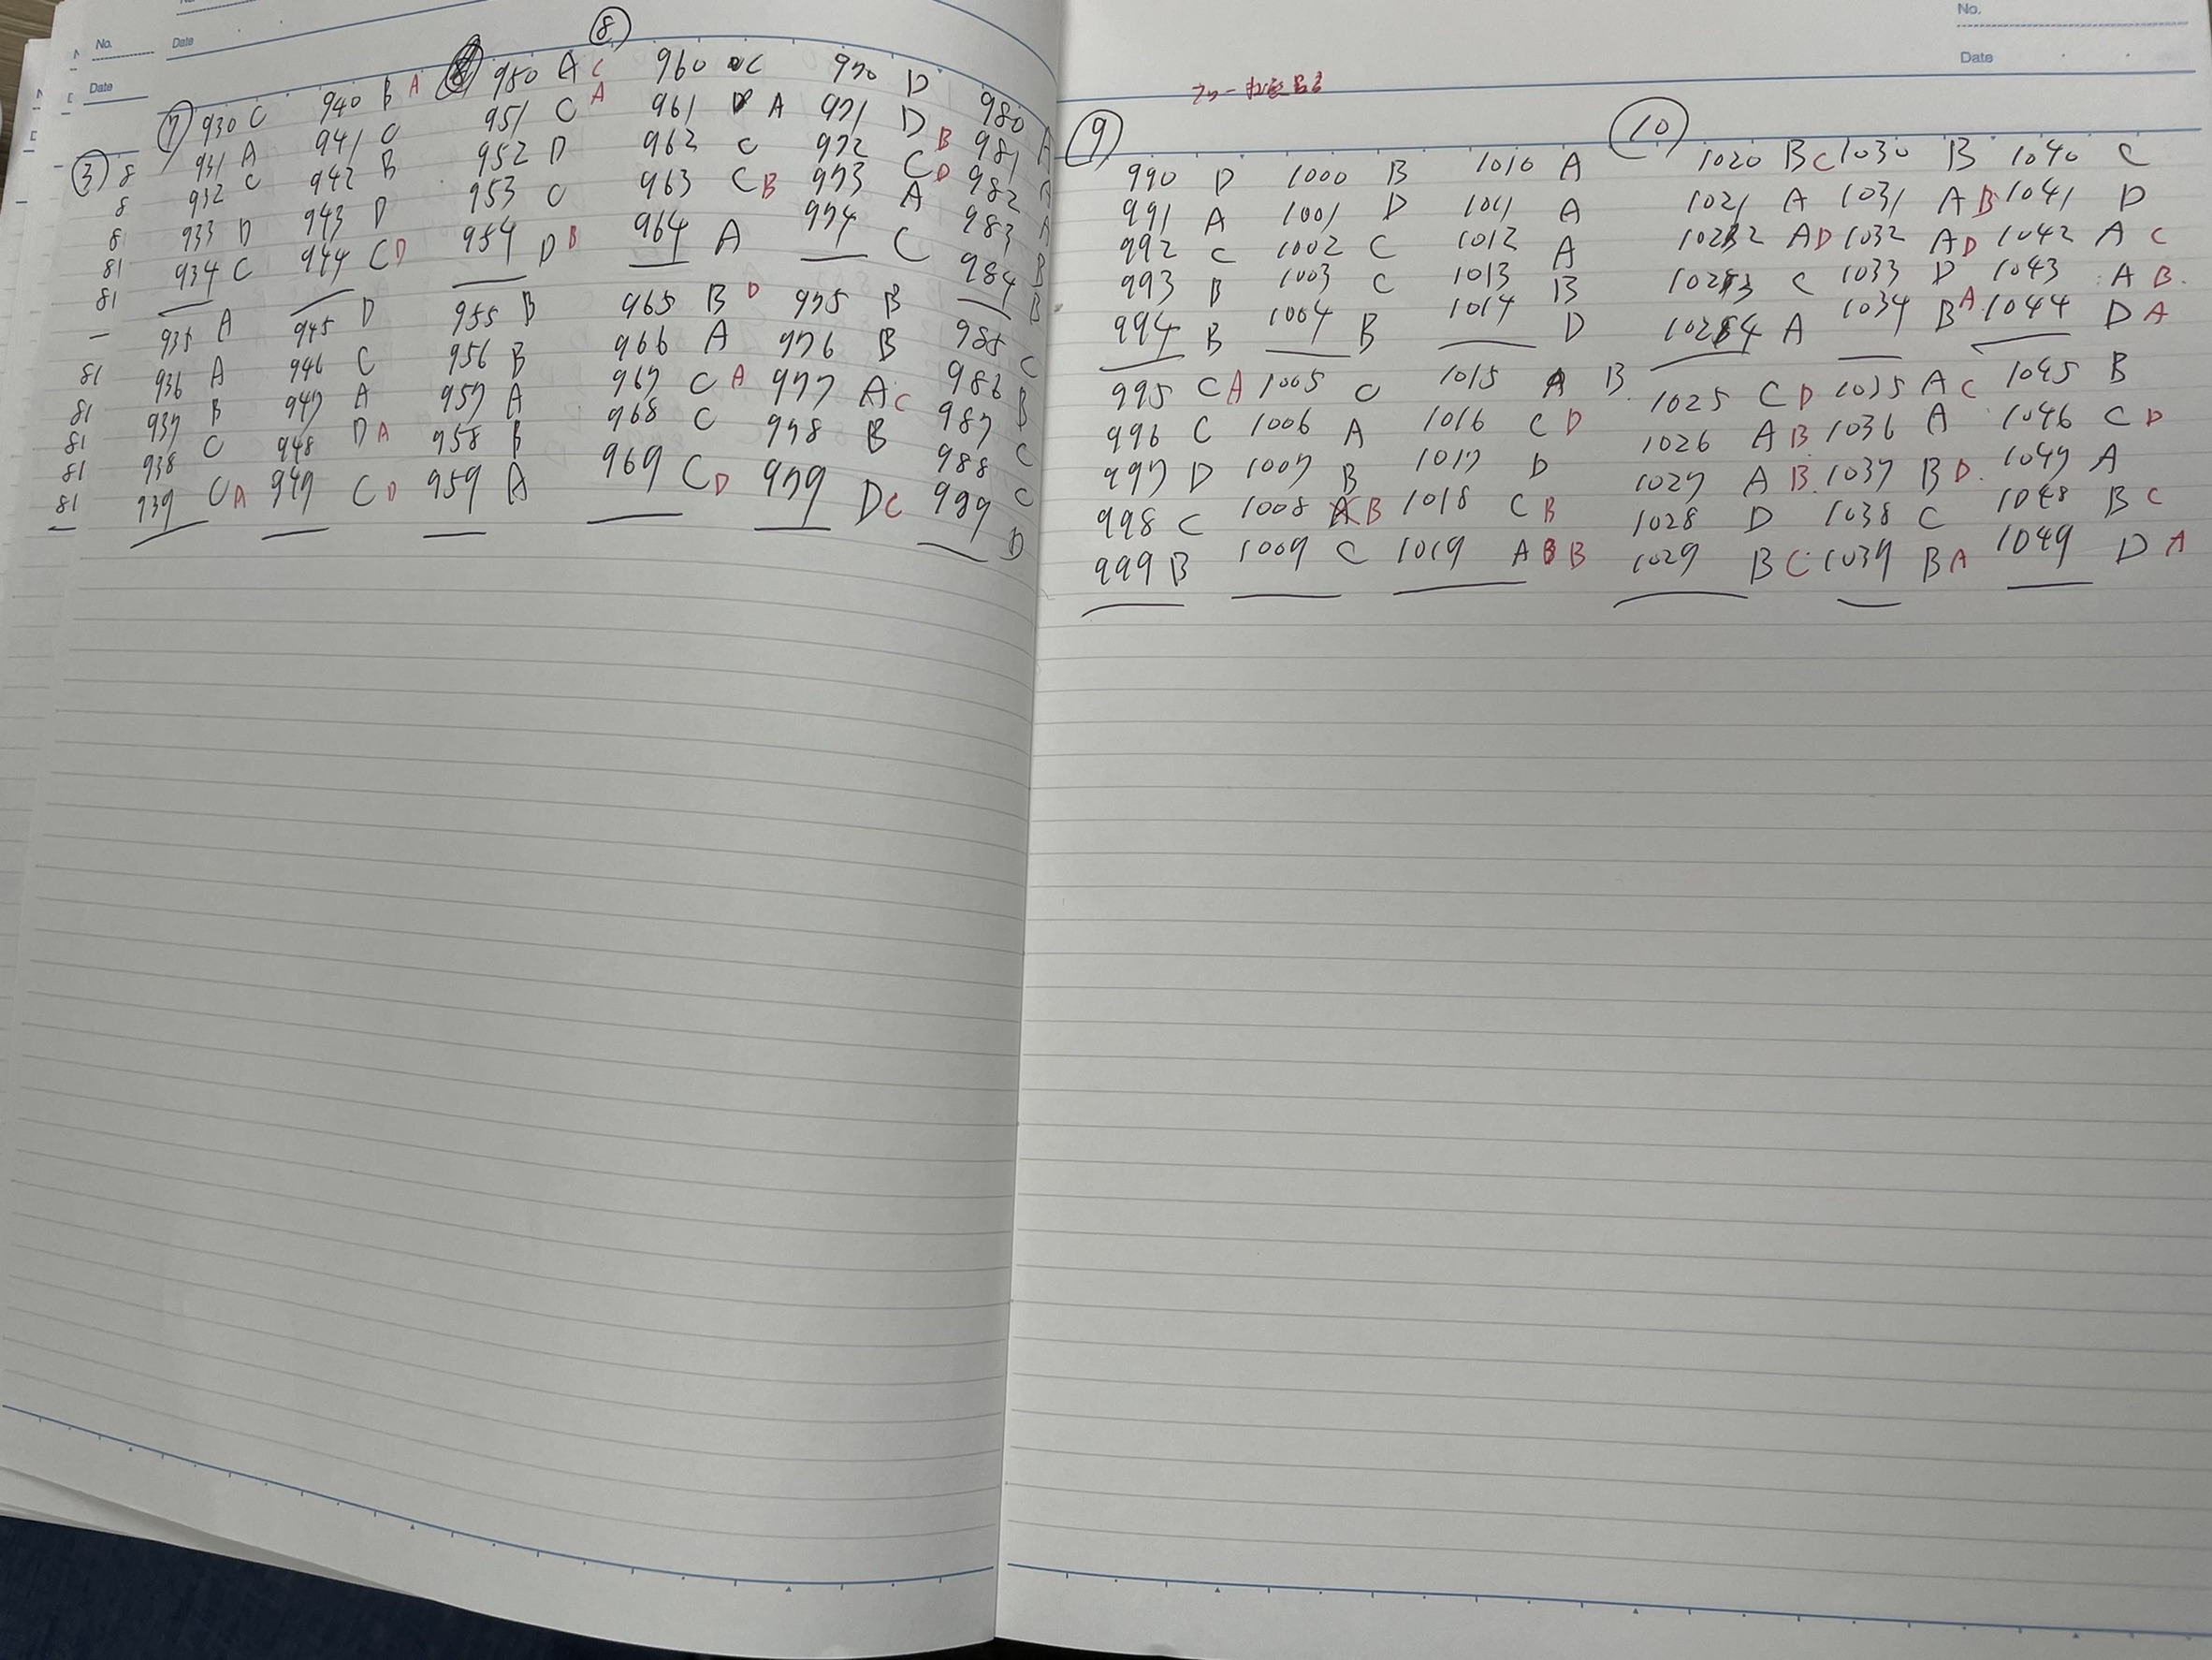 No.
Date
No.
Date
Date
⑧
⑦ 930 C 940 B A 950 A C 960 C 970 D 980 A
③ 8 931 A 941 C 951 C A 961 A 971 D B 981 A
8 932 C 942 B 952 D 962 C 972 C D 982 A
8 933 D 943 D 953 C 963 C B 973 A 983 B
81 934 C 944 C D 954 D B 964 A 974 C 984 B
81
935 A 945 D 955 B 965 B D 975 B 985 C
81 936 A 946 C 956 B 966 A 976 B 986 B
81 937 B 947 A 957 A 967 C A 977 A C 987 C
81 938 C 948 D A 958 B 968 C 978 B 988 C
81 939 C A 949 C D 959 A 969 C D 979 D C 989 D
81
No.
Date
⑨ ⑩
990 D 1000 B 1010 A 1020 B C 1030 B 1040 C
991 A 1001 D 1011 A 1021 A 1031 A B 1041 D
992 C 1002 C 1012 A 1022 A D 1032 A D 1042 A C
993 B 1003 C 1013 B 1023 C 1033 D 1043 A B
994 B 1004 B 1014 D 1024 A 1034 B A 1044 D A
995 C A 1005 C 1015 A B 1025 C D 1035 A C 1045 B
996 C 1006 A 1016 C D 1026 A B 1036 A 1046 C D
997 D 1007 B 1017 D 1027 A B 1037 B D 1047 A
998 C 1008 A B 1018 C B 1028 D 1038 C 1048 B C
999 B 1009 C 1019 A B B 1029 B C 1039 B A 1049 D A